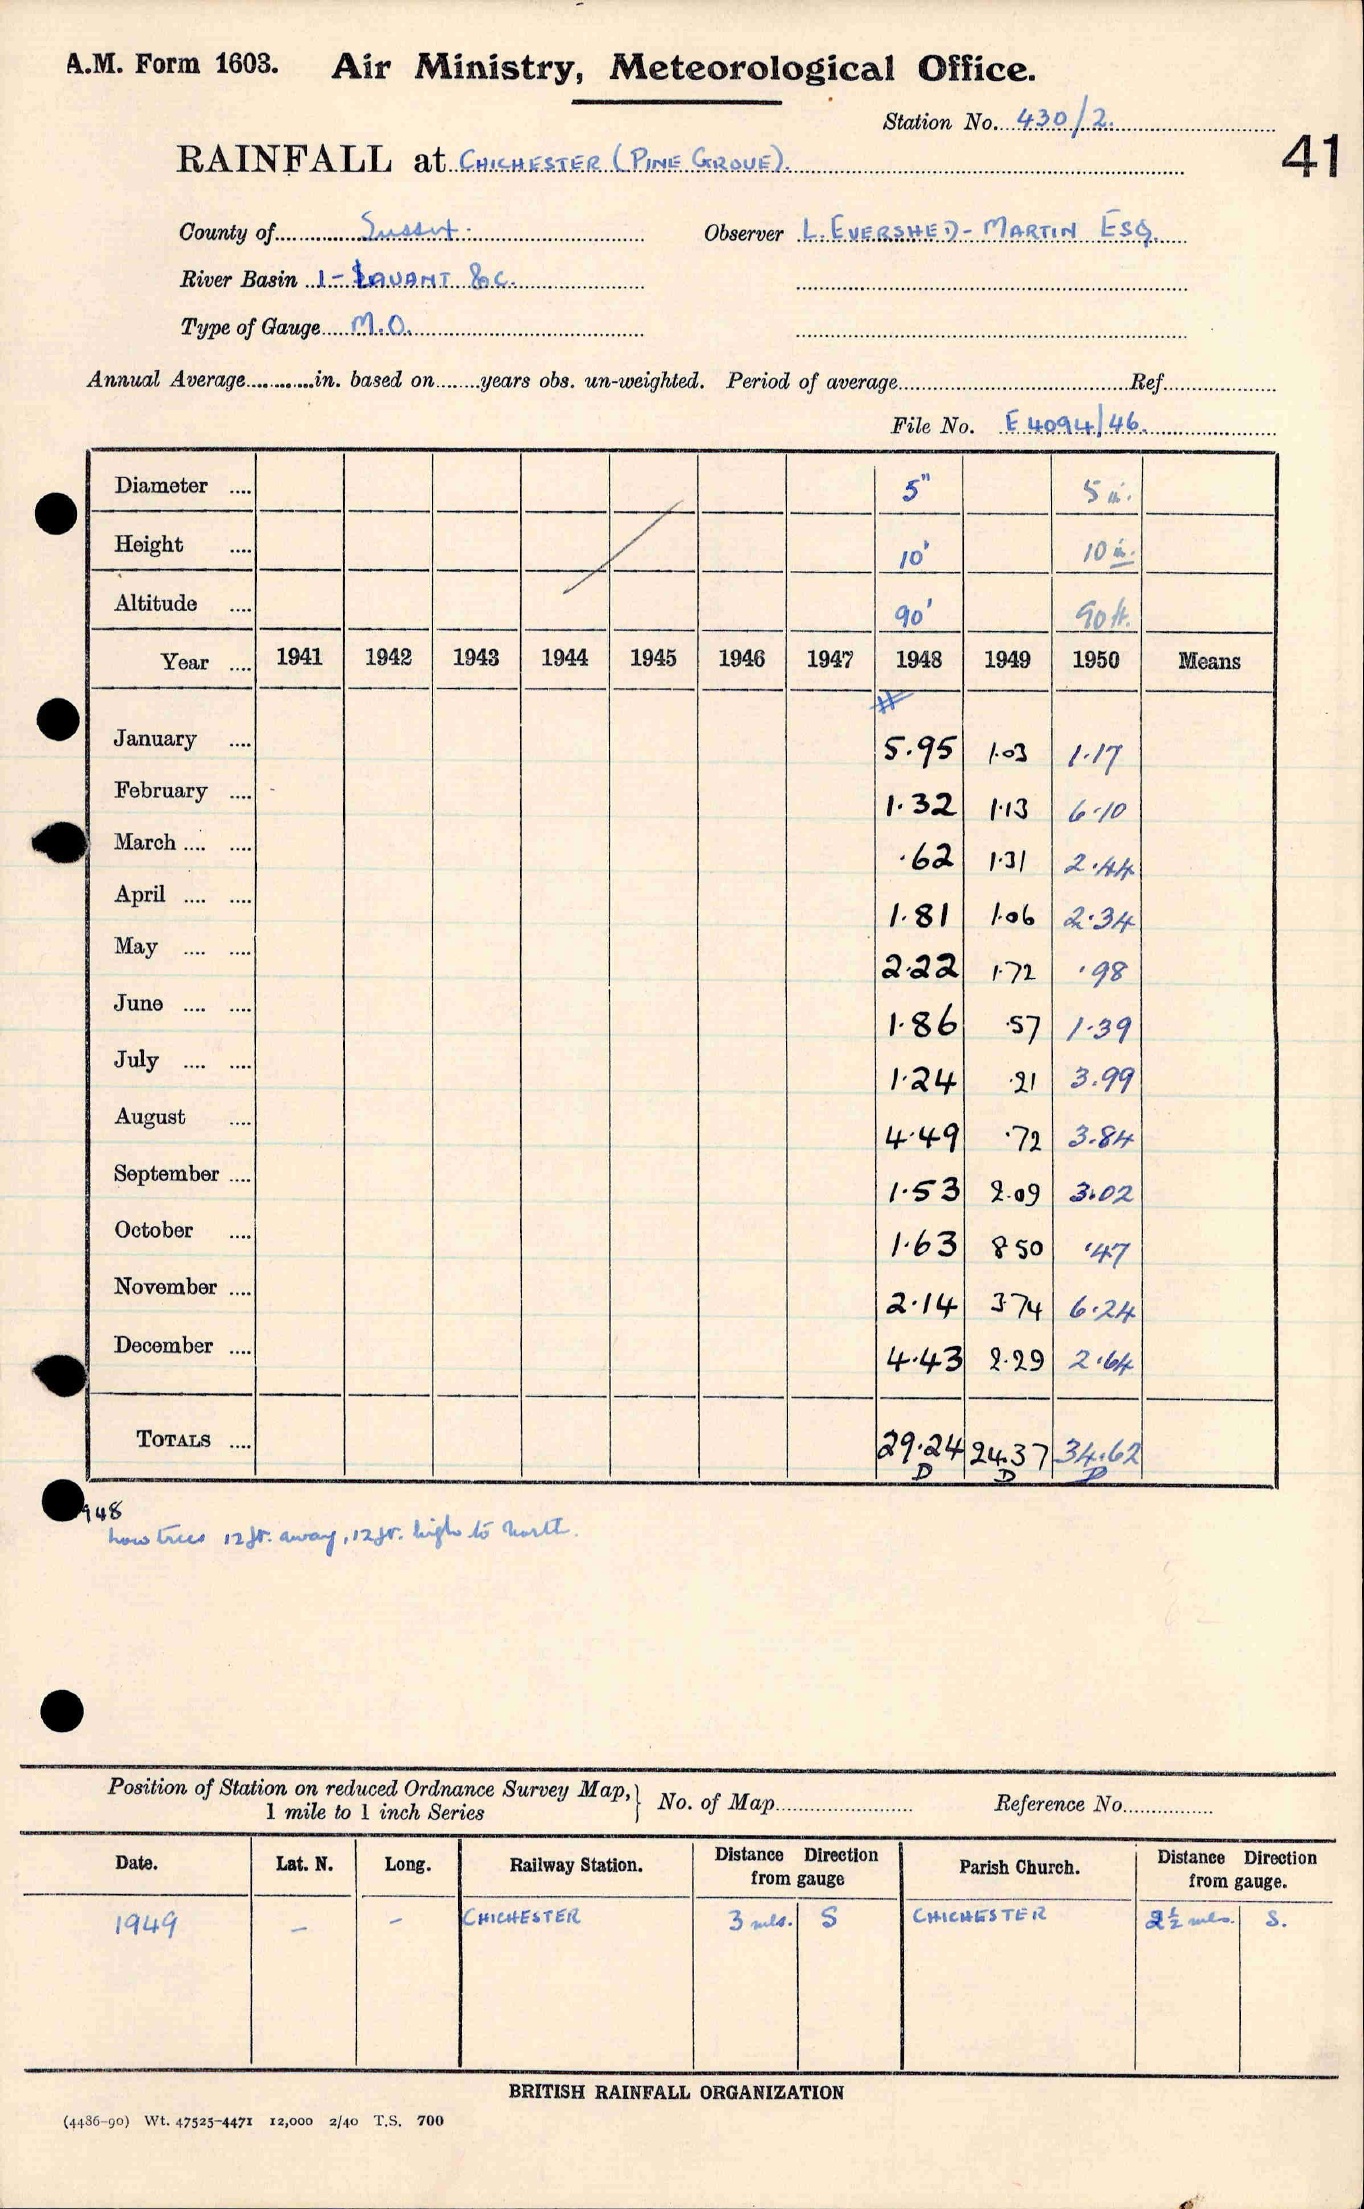 A.M. Form 1603. Air Ministry, Meteorological Office.
Station No. 430/2.
41
RAINFALL at CHICHESTER (PINE GROVE).
County of Sussex. Observer L. EVERSHED-MARTIN ESQ.
River Basin 1- LAVANT &c.
Type of Gauge M.O.
Annual Average in. based on years obs. un-weighted. Period of average Ref.
File No. E4094/46.
Diameter 5" 5 in.
Height 10' 10 in.
Altitude 90' 90 ft.
Year 1941 1942 1943 1944 1945 1946 1947 1948 1949 1950 Means
#
January 5.95 1.03 1.17
February 1.32 1.13 6.10
March .62 1.31 2.44
April 1.81 1.06 2.34
May 2.22 1.72 .98
June 1.86 .57 1.39
July 1.24 .21 3.99
August 4.49 .72 3.84
September 1.53 2.09 3.02
October 1.63 8 50 .47
November 2.14 3.74 6.24
December 4.43 2.29 2.64
TOTALS 29.24 24.37 34.62
D D D
948
Low trees 12 ft. away, 12 ft. high to North.
Position of Station on reduced Ordnance Survey Map,} No. of Map Reference No.
1 mile to 1 inch Series
Date. Lat. N. Long. Railway Station. Distance Direction from gauge Parish Church. Distance Direction from gauge.
1949 – – CHICHESTER 3 mls. S CHICHESTER 2½ mls. S.
BRITISH RAINFALL ORGANIZATION
(4486-90) Wt. 47525-4471 12,000 2/40 T.S. 700